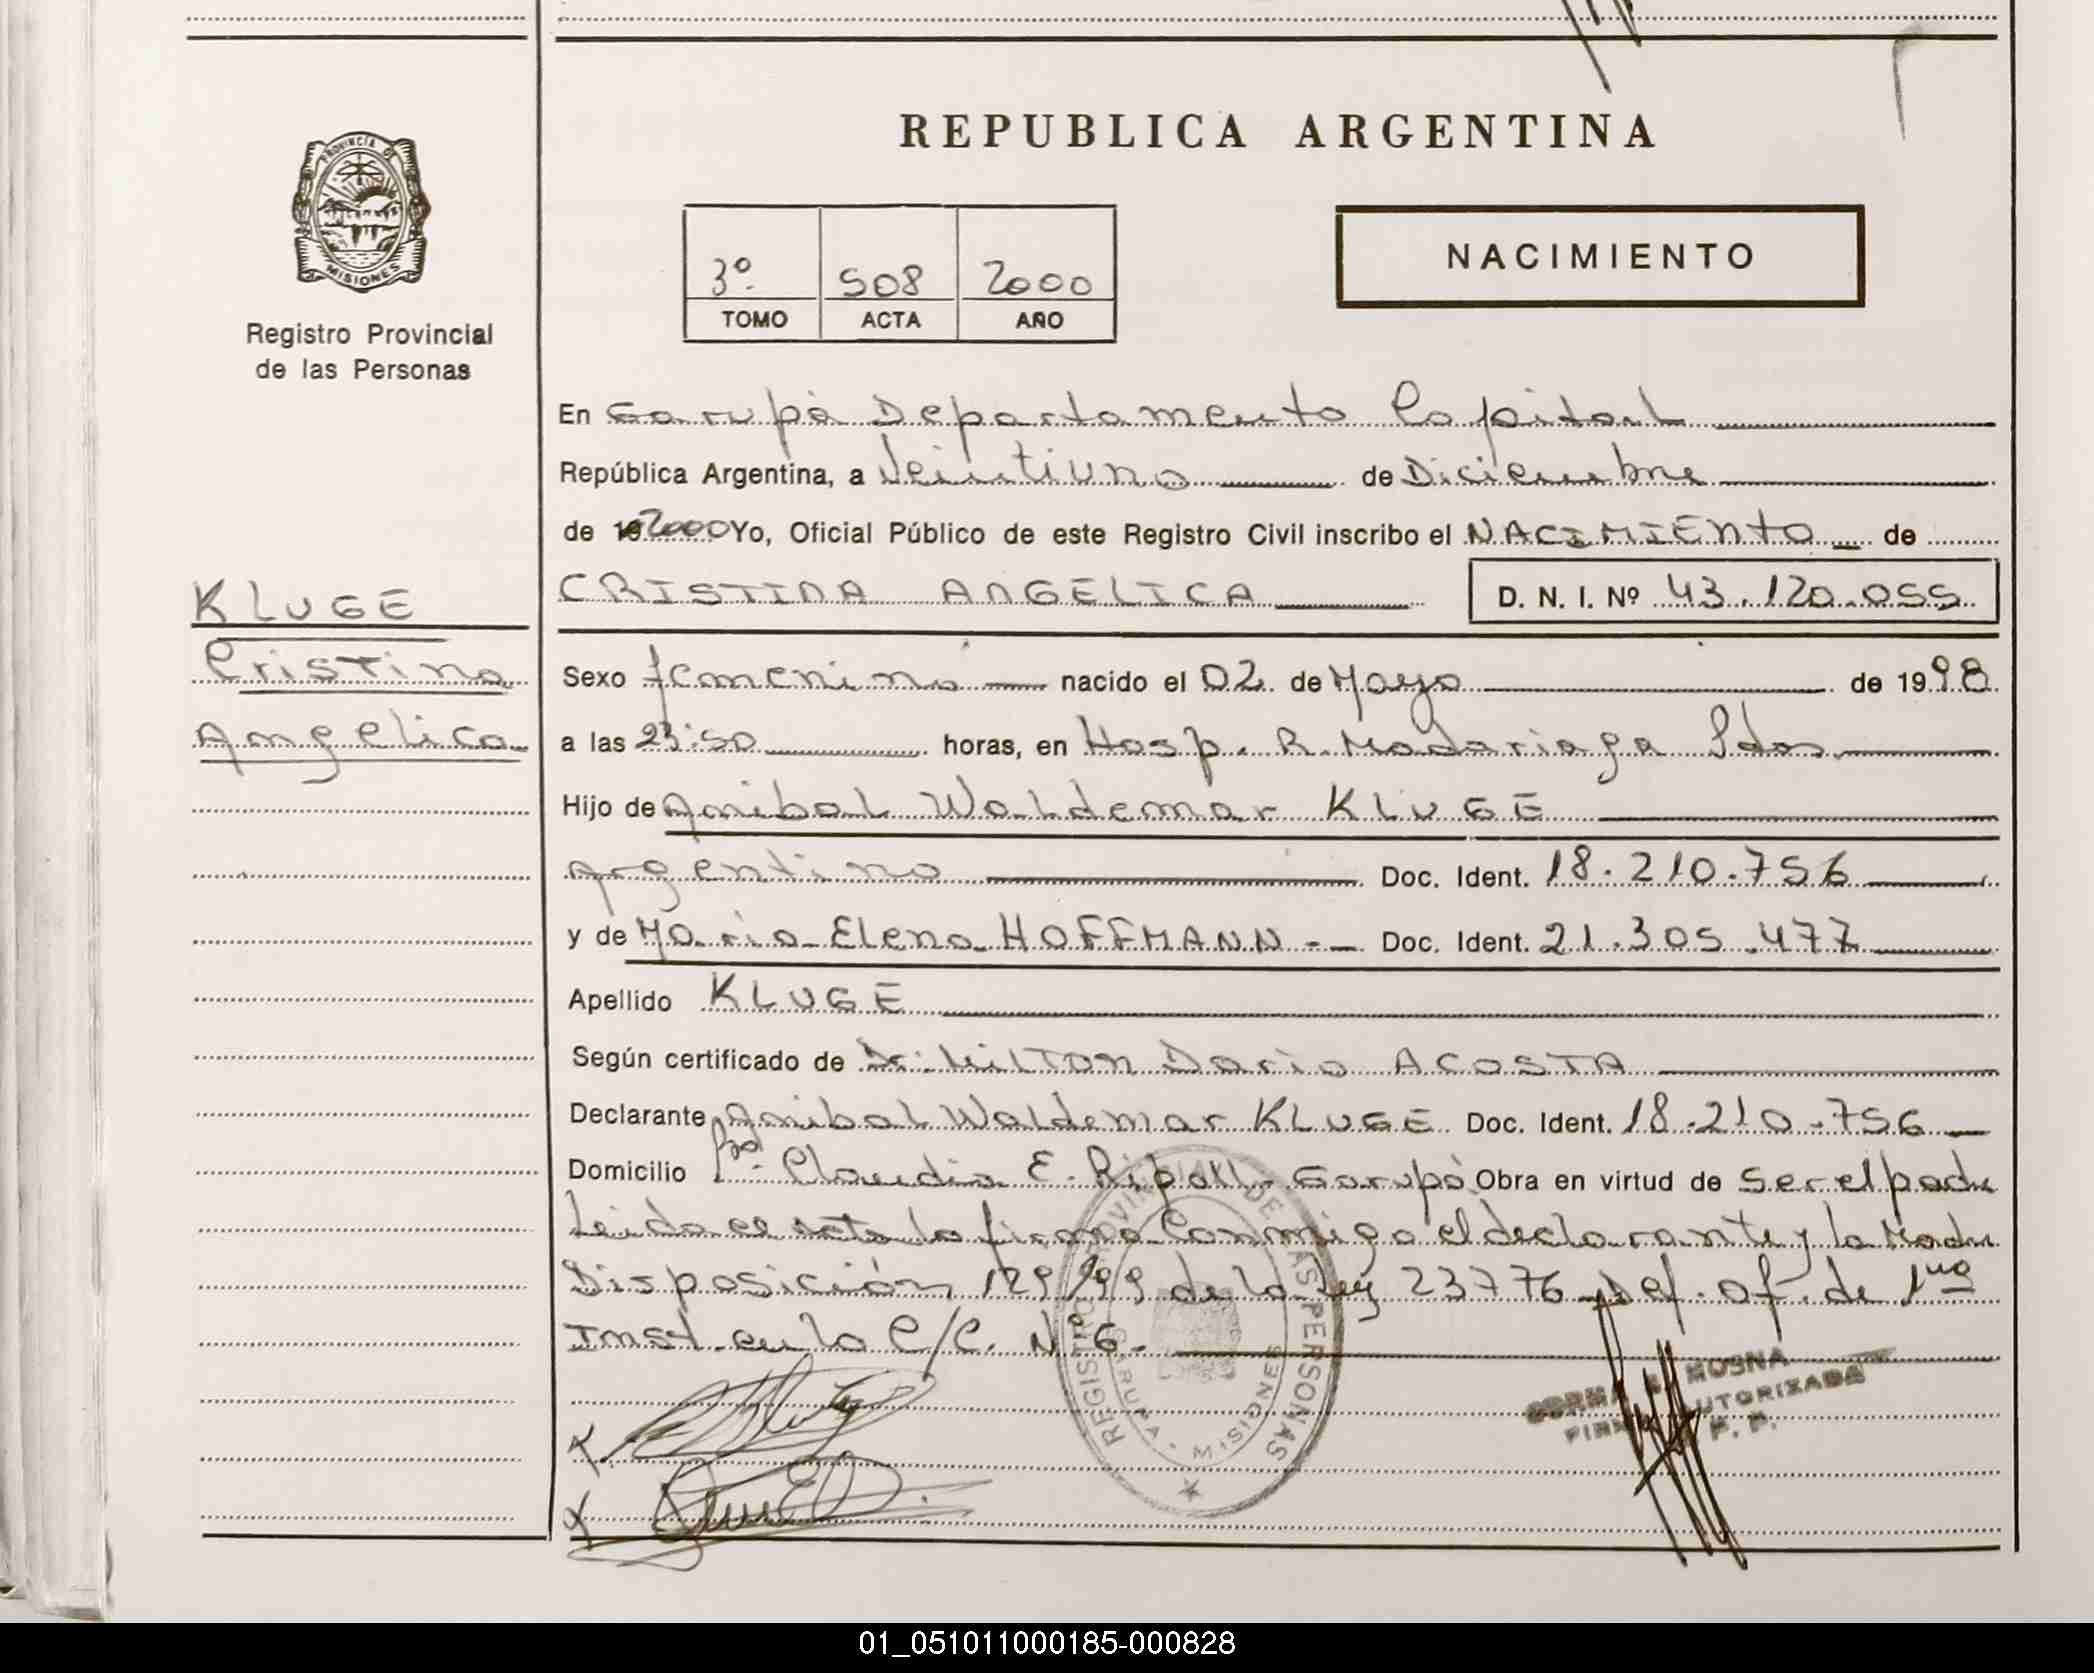 REPUBLICA ARGENTINA
PROVINCIA DE
MISIONES
Registro Provincial
de las Personas
3º 508 2000
TOMO ACTA AÑO
NACIMIENTO
En Garupá Departamento Capital
República Argentina, a Veintiuno de Diciembre
de 19 2000 Yo, Oficial Público de este Registro Civil inscribo el NACIMIENTO de
CRISTINA ANGELICA D. N. I. Nº 43.120.055
KLUGE
Cristina
Angelica
Sexo femenino nacido el 02 de Mayo de 1998
a las 23:50 horas, en Hosp. R. Madariaga Pdas
Hijo de Anibal Waldemar KLUGE
argentino Doc. Ident. 18.210.756
y de Maria Elena HOFFMANN Doc. Ident. 21.305.477
Apellido KLUGE
Según certificado de Dr. MILTON Dario ACOSTA
Declarante Anibal Waldemar KLUGE Doc. Ident. 18.210.756
Domicilio Claudia E. Ripoll - Garupá Obra en virtud de ser el padre
Leida el acta la firma Conmigo el declarante y la Madre
Disposición 129/99 de la Ley 23776 Def. of. de 1ra
Inst. en lo C/C. Nº 6.
REGISTRO PROVINCIAL DE LAS PERSONAS
GARUPA
MISIONES
MOSNA
FIRMA AUTORIZADA
01_051011000185-000828